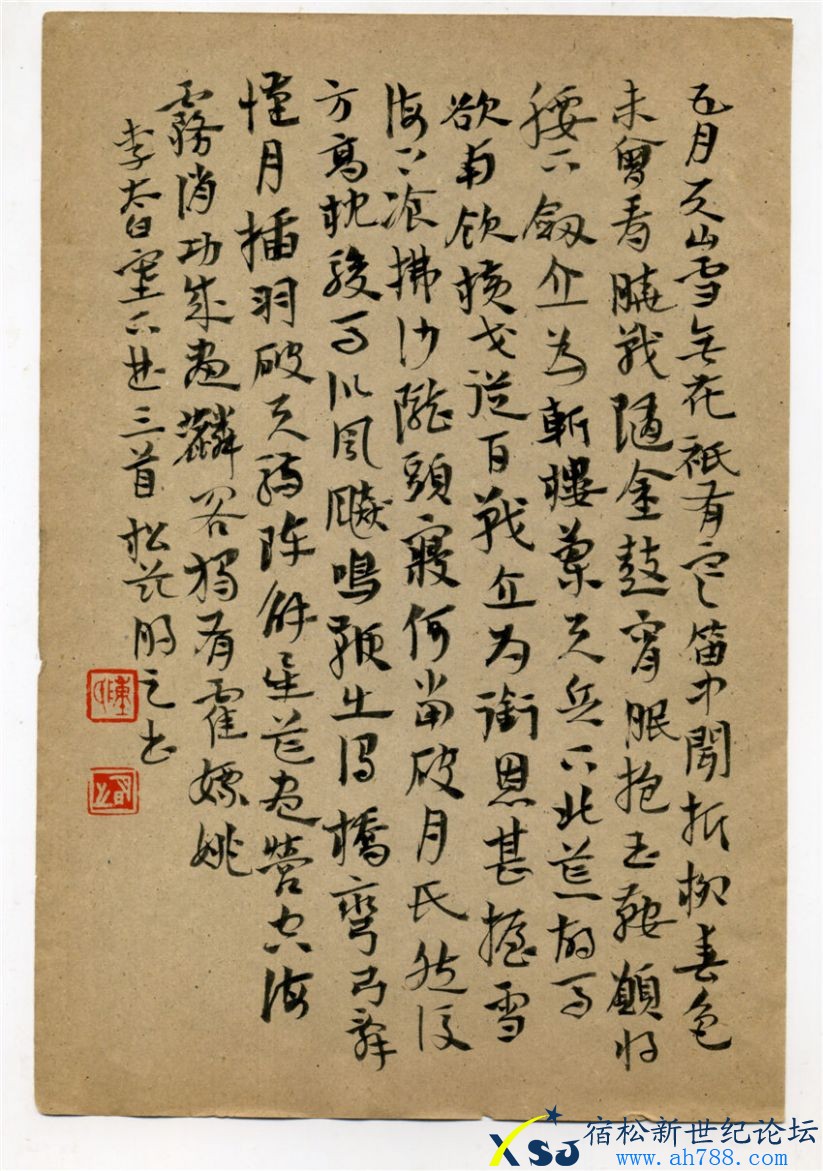 五月天山雪無花祇有寒笛中聞折柳春色
未曾看曉戰隨金鼓宵眠抱玉鞍願將
腰下劔直為斬樓蘭天兵下北荒胡馬
欲南飲橫戈從百戰直為銜恩甚握雪
海上飡拂沙隴頭寢何當破月氏然後
方高枕駿馬似風飈鳴鞭出渭橋彎弓辭
漢月插羽破天驕陣解星芒盡營空海
霧消功成畫麟閣獨有霍嫖姚
李太白塞下曲三首松茲朋之書
XSJ 宿松新世纪论坛
www.ah788.com